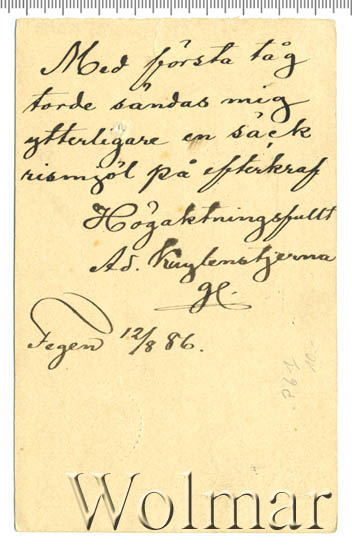 Med första tåg
torde sändas mig
ytterligare en säck
rismjöl på efterkraf
Högaktningsfullt
Ad. Kuylenstjerna
Fegen 12/8 86.
P67
10.-
Wolmar